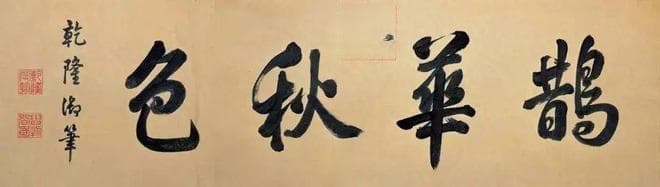 鵲華秋色
乾隆御筆